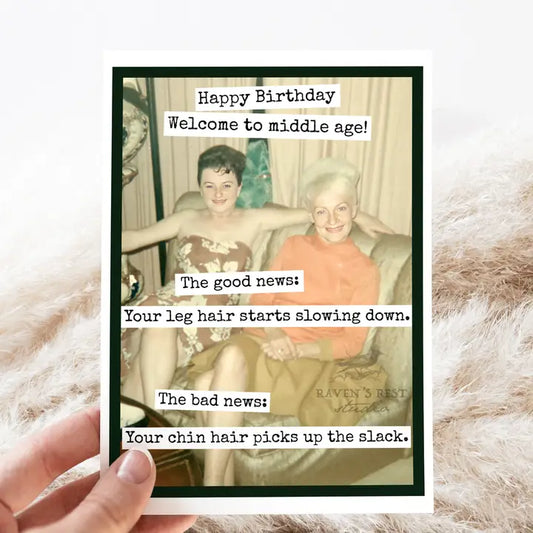 Happy Birthday
Welcome to middle age!
The good news:
Your leg hair starts slowing down.
RAVEN'S REST
studio
The bad news:
Your chin hair picks up the slack.